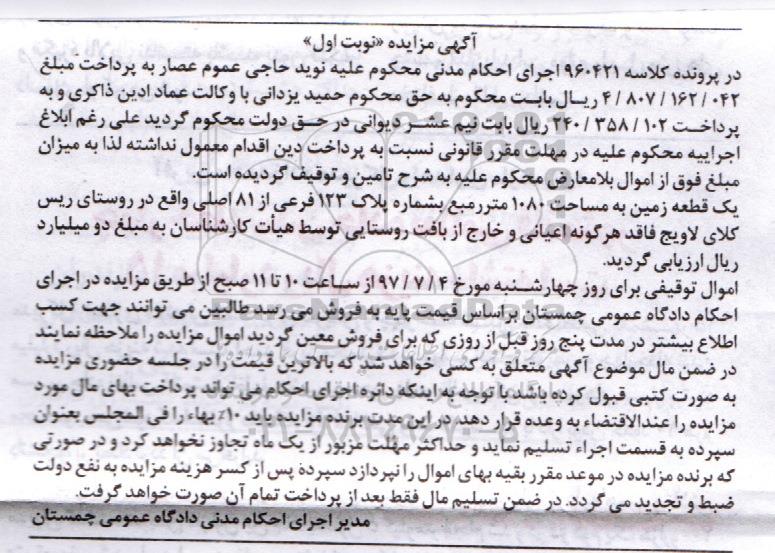 آگهی مزایده «نوبت اول»
در پرونده کلاسه ۹۶۰۴۲۱ اجرای احکام مدنی محکوم علیه نوید حاجی عموم عصار به پرداخت مبلغ
۴/۸۰۷/۱۶۲/۰۴۲ ریال بابت محکوم به حق محکوم حمید یزدانی با وکالت عماد ادین ذاکری و به
پرداخت ۲۴۰/۳۵۸/۱۰۲ ریال بابت نیم عشر دیوانی در حق دولت محکوم گردید علی رغم ابلاغ
اجراییه محکوم علیه در مهلت مقرر قانونی نسبت به پرداخت دین اقدام معمول نداشته لذا به میزان
مبلغ فوق از اموال بلامعارض محکوم علیه به شرح تامین و توقیف گردیده است.
یک قطعه زمین به مساحت ۱۰۸۰ مترمربع بشماره پلاک ۱۲۳ فرعی از ۸۱ اصلی واقع در روستای ریس
کلای لاویج فاقد هرگونه اعیانی و خارج از بافت روستایی توسط هیأت کارشناسان به مبلغ دو میلیارد
ریال ارزیابی گردید.
اموال توقیفی برای روز چهارشنبه مورخ ۹۷/۷/۴ از ساعت ۱۰ تا ۱۱ صبح از طریق مزایده در اجرای
احکام دادگاه عمومی چمستان براساس قیمت پایه به فروش می رسد طالبین می توانند جهت کسب
اطلاع بیشتر در مدت پنج روز قبل از روزی که برای فروش معین گردید اموال مزایده را ملاحظه نمایند
در ضمن مال موضوع آگهی متعلق به کسی خواهد شد که بالاترین قیمت را در جلسه حضوری مزایده
به صورت کتبی قبول کرده باشد با توجه به اینکه دائره اجرای احکام می تواند پرداخت بهای مال مورد
مزایده را عندالاقتضاء به وعده قرار دهد، در این مدت برنده مزایده باید ۱۰٪ بهاء را فی المجلس بعنوان
سپرده به قسمت اجراء تسلیم نماید و حداکثر مهلت مزبور از یک ماه تجاوز نخواهد کرد و در صورتی
که برنده مزایده در موعد مقرر بقیه بهای اموال را نپردازد سپرده پس از کسر هزینه مزایده به نفع دولت
ضبط و تجدید می گردد. در ضمن تسلیم مال فقط بعد از پرداخت تمام آن صورت خواهد گرفت.
مدیر اجرای احکام مدنی دادگاه عمومی چمستان